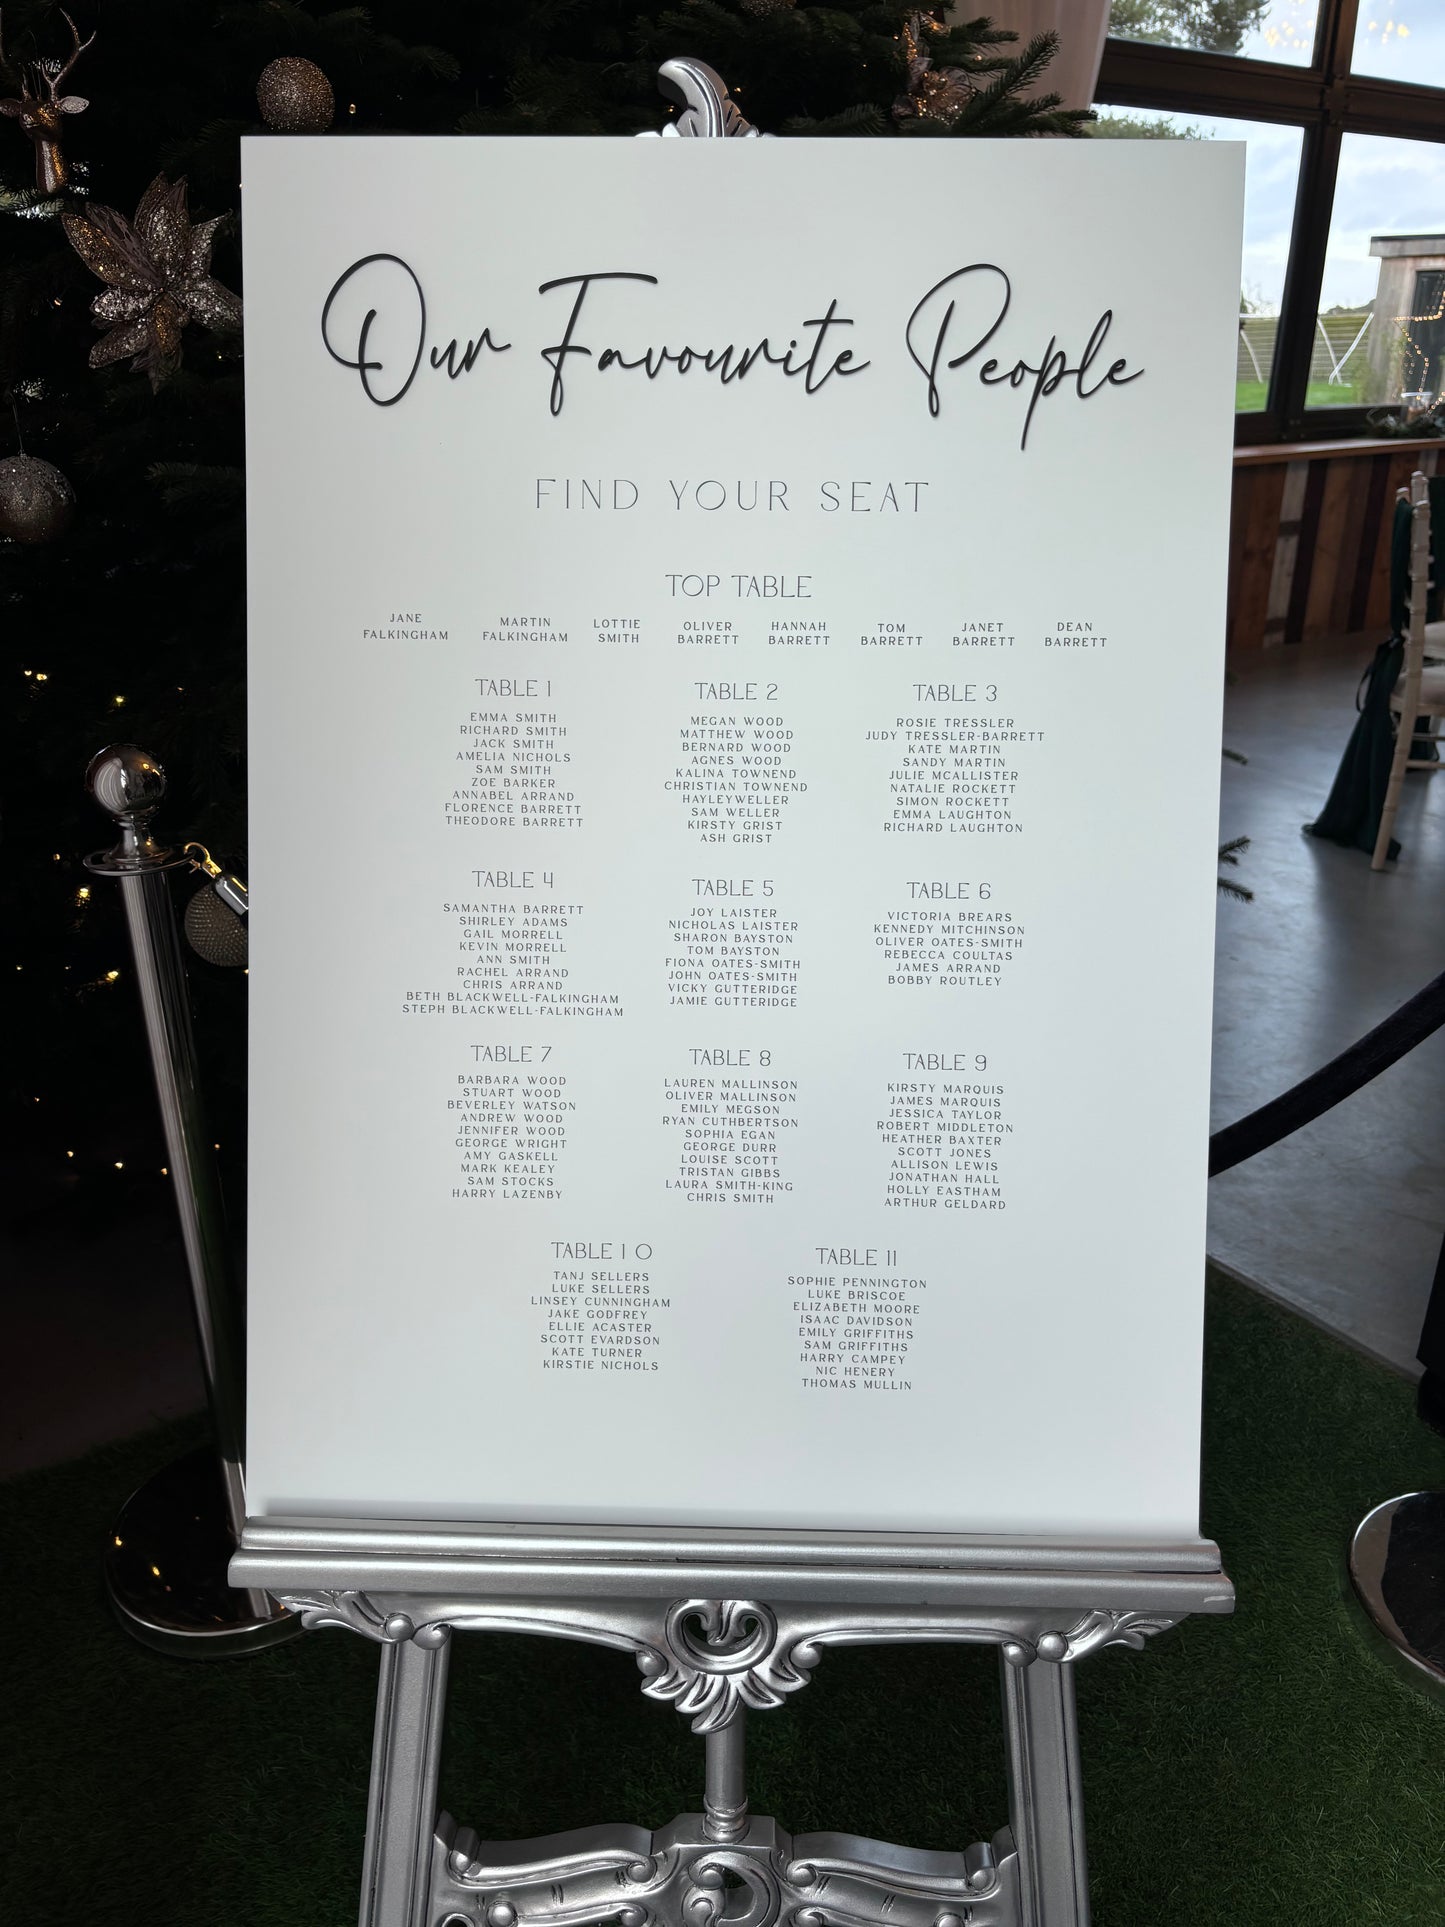 Our Favourite People
FIND YOUR SEAT
TOP TABLE
JANE FALKINGHAM
MARTIN FALKINGHAM
LOTTIE SMITH
OLIVER BARRETT
HANNAH BARRETT
TOM BARRETT
JANET BARRETT
DEAN BARRETT
TABLE 1
EMMA SMITH
RICHARD SMITH
JACK SMITH
AMELIA NICHOLS
SAM SMITH
ZOE BARKER
ANNABEL ARRAND
FLORENCE BARRETT
THEODORE BARRETT
TABLE 2
MEGAN WOOD
MATTHEW WOOD
BERNARD WOOD
AGNES WOOD
KALINA TOWNEND
CHRISTIAN TOWNEND
HAYLEYWELLER
SAM WELLER
KIRSTY GRIST
ASH GRIST
TABLE 3
ROSIE TRESSLER
JUDY TRESSLER-BARRETT
KATE MARTIN
SANDY MARTIN
JULIE MCALLISTER
NATALIE ROCKETT
SIMON ROCKETT
EMMA LAUGHTON
RICHARD LAUGHTON
TABLE 4
SAMANTHA BARRETT
SHIRLEY ADAMS
GAIL MORRELL
KEVIN MORRELL
ANN SMITH
RACHEL ARRAND
CHRIS ARRAND
BETH BLACKWELL-FALKINGHAM
STEPH BLACKWELL-FALKINGHAM
TABLE 5
JOY LAISTER
NICHOLAS LAISTER
SHARON BAYSTON
TOM BAYSTON
FIONA OATES-SMITH
JOHN OATES-SMITH
VICKY GUTTERIDGE
JAMIE GUTTERIDGE
TABLE 6
VICTORIA BREARS
KENNEDY MITCHINSON
OLIVER OATES-SMITH
REBECCA COULTAS
JAMES ARRAND
BOBBY ROUTLEY
TABLE 7
BARBARA WOOD
STUART WOOD
BEVERLEY WATSON
ANDREW WOOD
JENNIFER WOOD
GEORGE WRIGHT
AMY GASKELL
MARK KEALEY
SAM STOCKS
HARRY LAZENBY
TABLE 8
LAUREN MALLINSON
OLIVER MALLINSON
EMILY MEGSON
RYAN CUTHBERTSON
SOPHIA EGAN
GEORGE DURR
LOUISE SCOTT
TRISTAN GIBBS
LAURA SMITH-KING
CHRIS SMITH
TABLE 9
KIRSTY MARQUIS
JAMES MARQUIS
JESSICA TAYLOR
ROBERT MIDDLETON
HEATHER BAXTER
SCOTT JONES
ALLISON LEWIS
JONATHAN HALL
HOLLY EASTHAM
ARTHUR GELDARD
TABLE 10
TANJ SELLERS
LUKE SELLERS
LINSEY CUNNINGHAM
JAKE GODFREY
ELLIE ACASTER
SCOTT EVARDSON
KATE TURNER
KIRSTIE NICHOLS
TABLE 11
SOPHIE PENNINGTON
LUKE BRISCOE
ELIZABETH MOORE
ISAAC DAVIDSON
EMILY GRIFFITHS
SAM GRIFFITHS
HARRY CAMPEY
NIC HENERY
THOMAS MULLIN